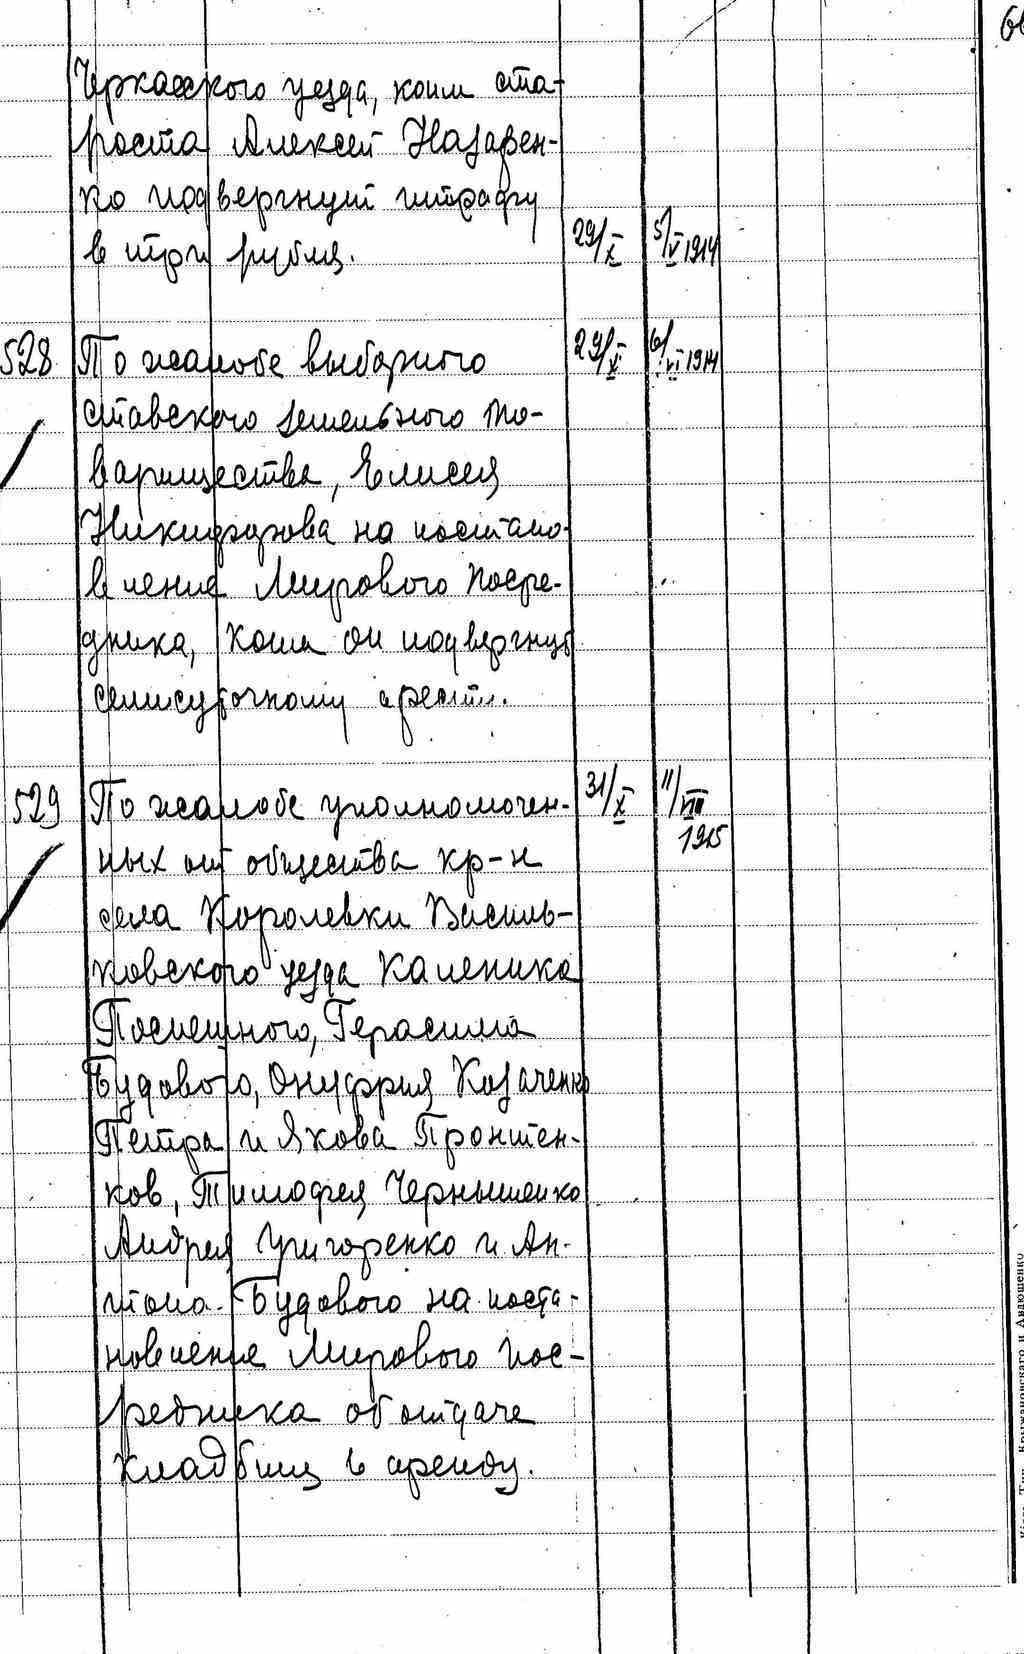 Черкасского уезда, коим ста-
роста Алексей Назарен-
ко подвергнут штрафу
в три рубля. 29/X 5/V 1914
528 По жалобе выборного 29/X 6/VI 1914
ставского земельного то-
варищества, Елисея
Никифорова на постано-
вление Мирового Посре-
дника, коим он подвергнут
семисуточному аресту.
529 По жалобе уполномочен- 31/X 11/VIII 1915
ных от общества кр-н
села Королевки Василь-
ковского уезда Каленика
Поспешного, Герасима
Будового, Онуфрия Козаченко
Петра и Якова Проштен-
ков, Тимофея Чернышенко
Андрея Григоренко и Ан-
тона Будового на поста-
новление Мирового Пос-
редника об отдаче
кладбищ в аренду.
Тип. Крыжановскаго и Авдюшенко